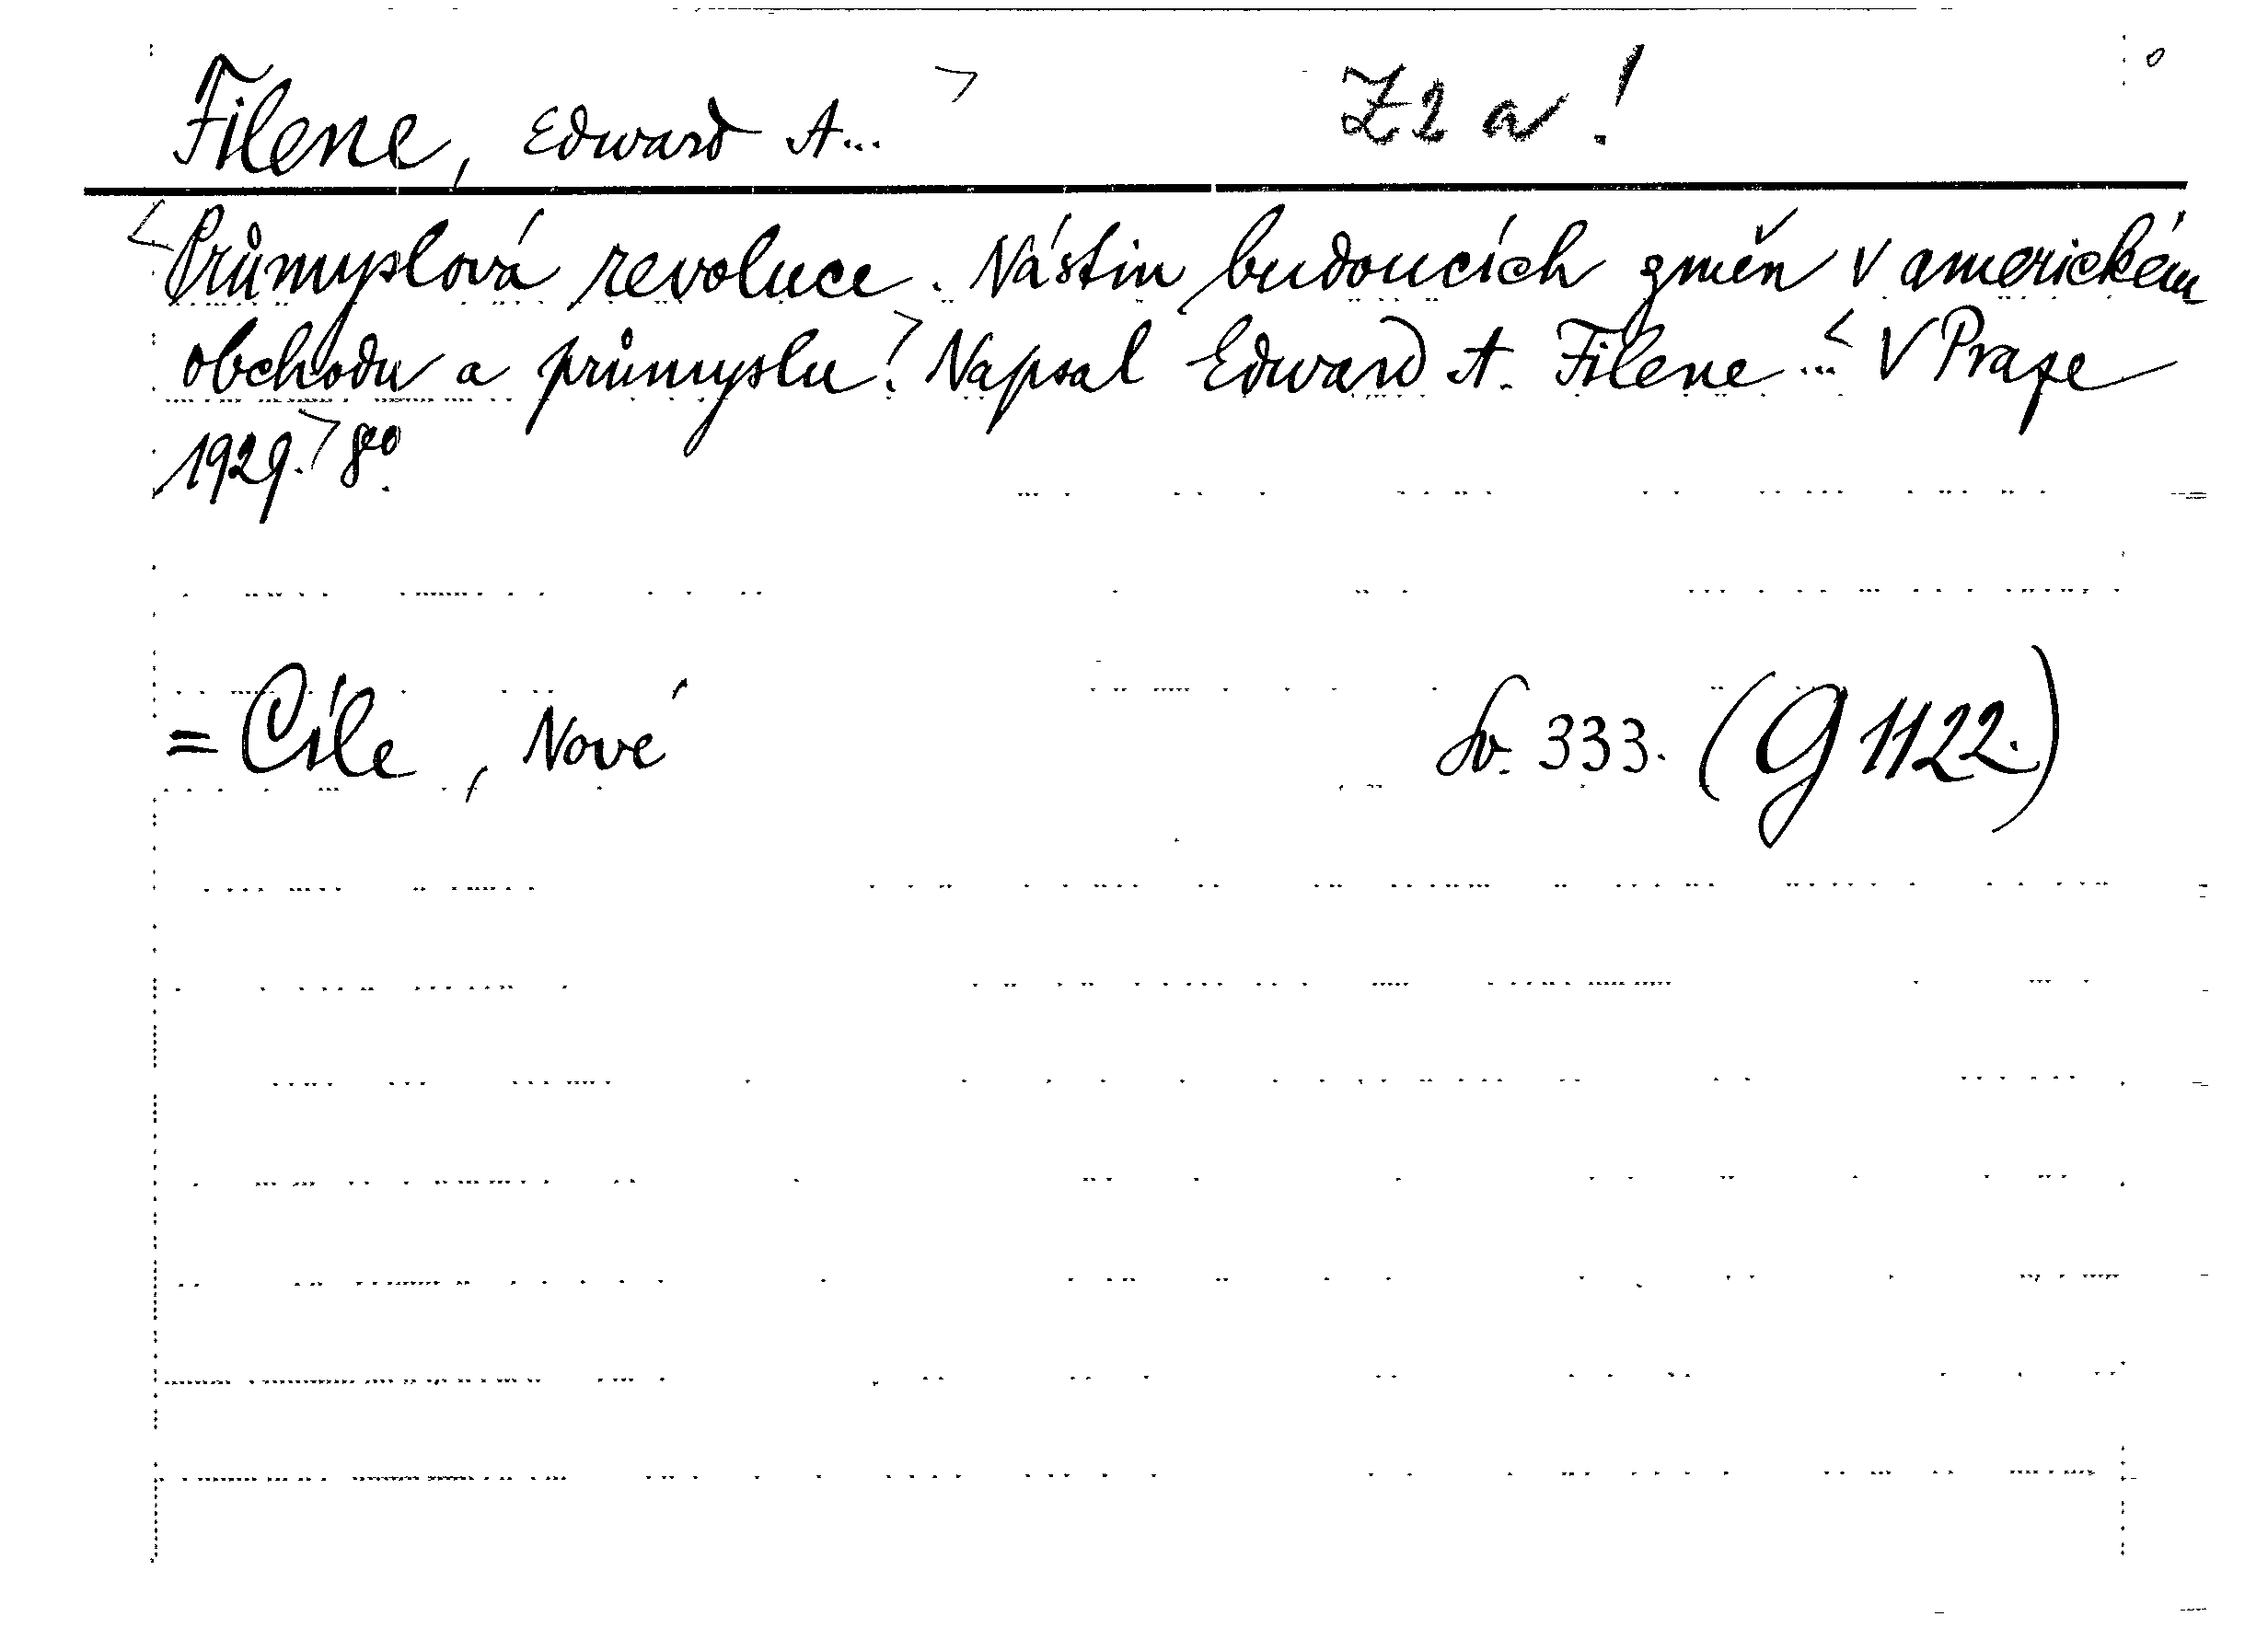 Filene, Edward A... Z2a!
Průmyslová revoluce. Nástin budoucích změn v americkém
obchodu a průmyslu. Napsal Edward A. Filene ... V Praze
1929. 8º.
= Cíle, Nové Sv. 333. (G 1122.)